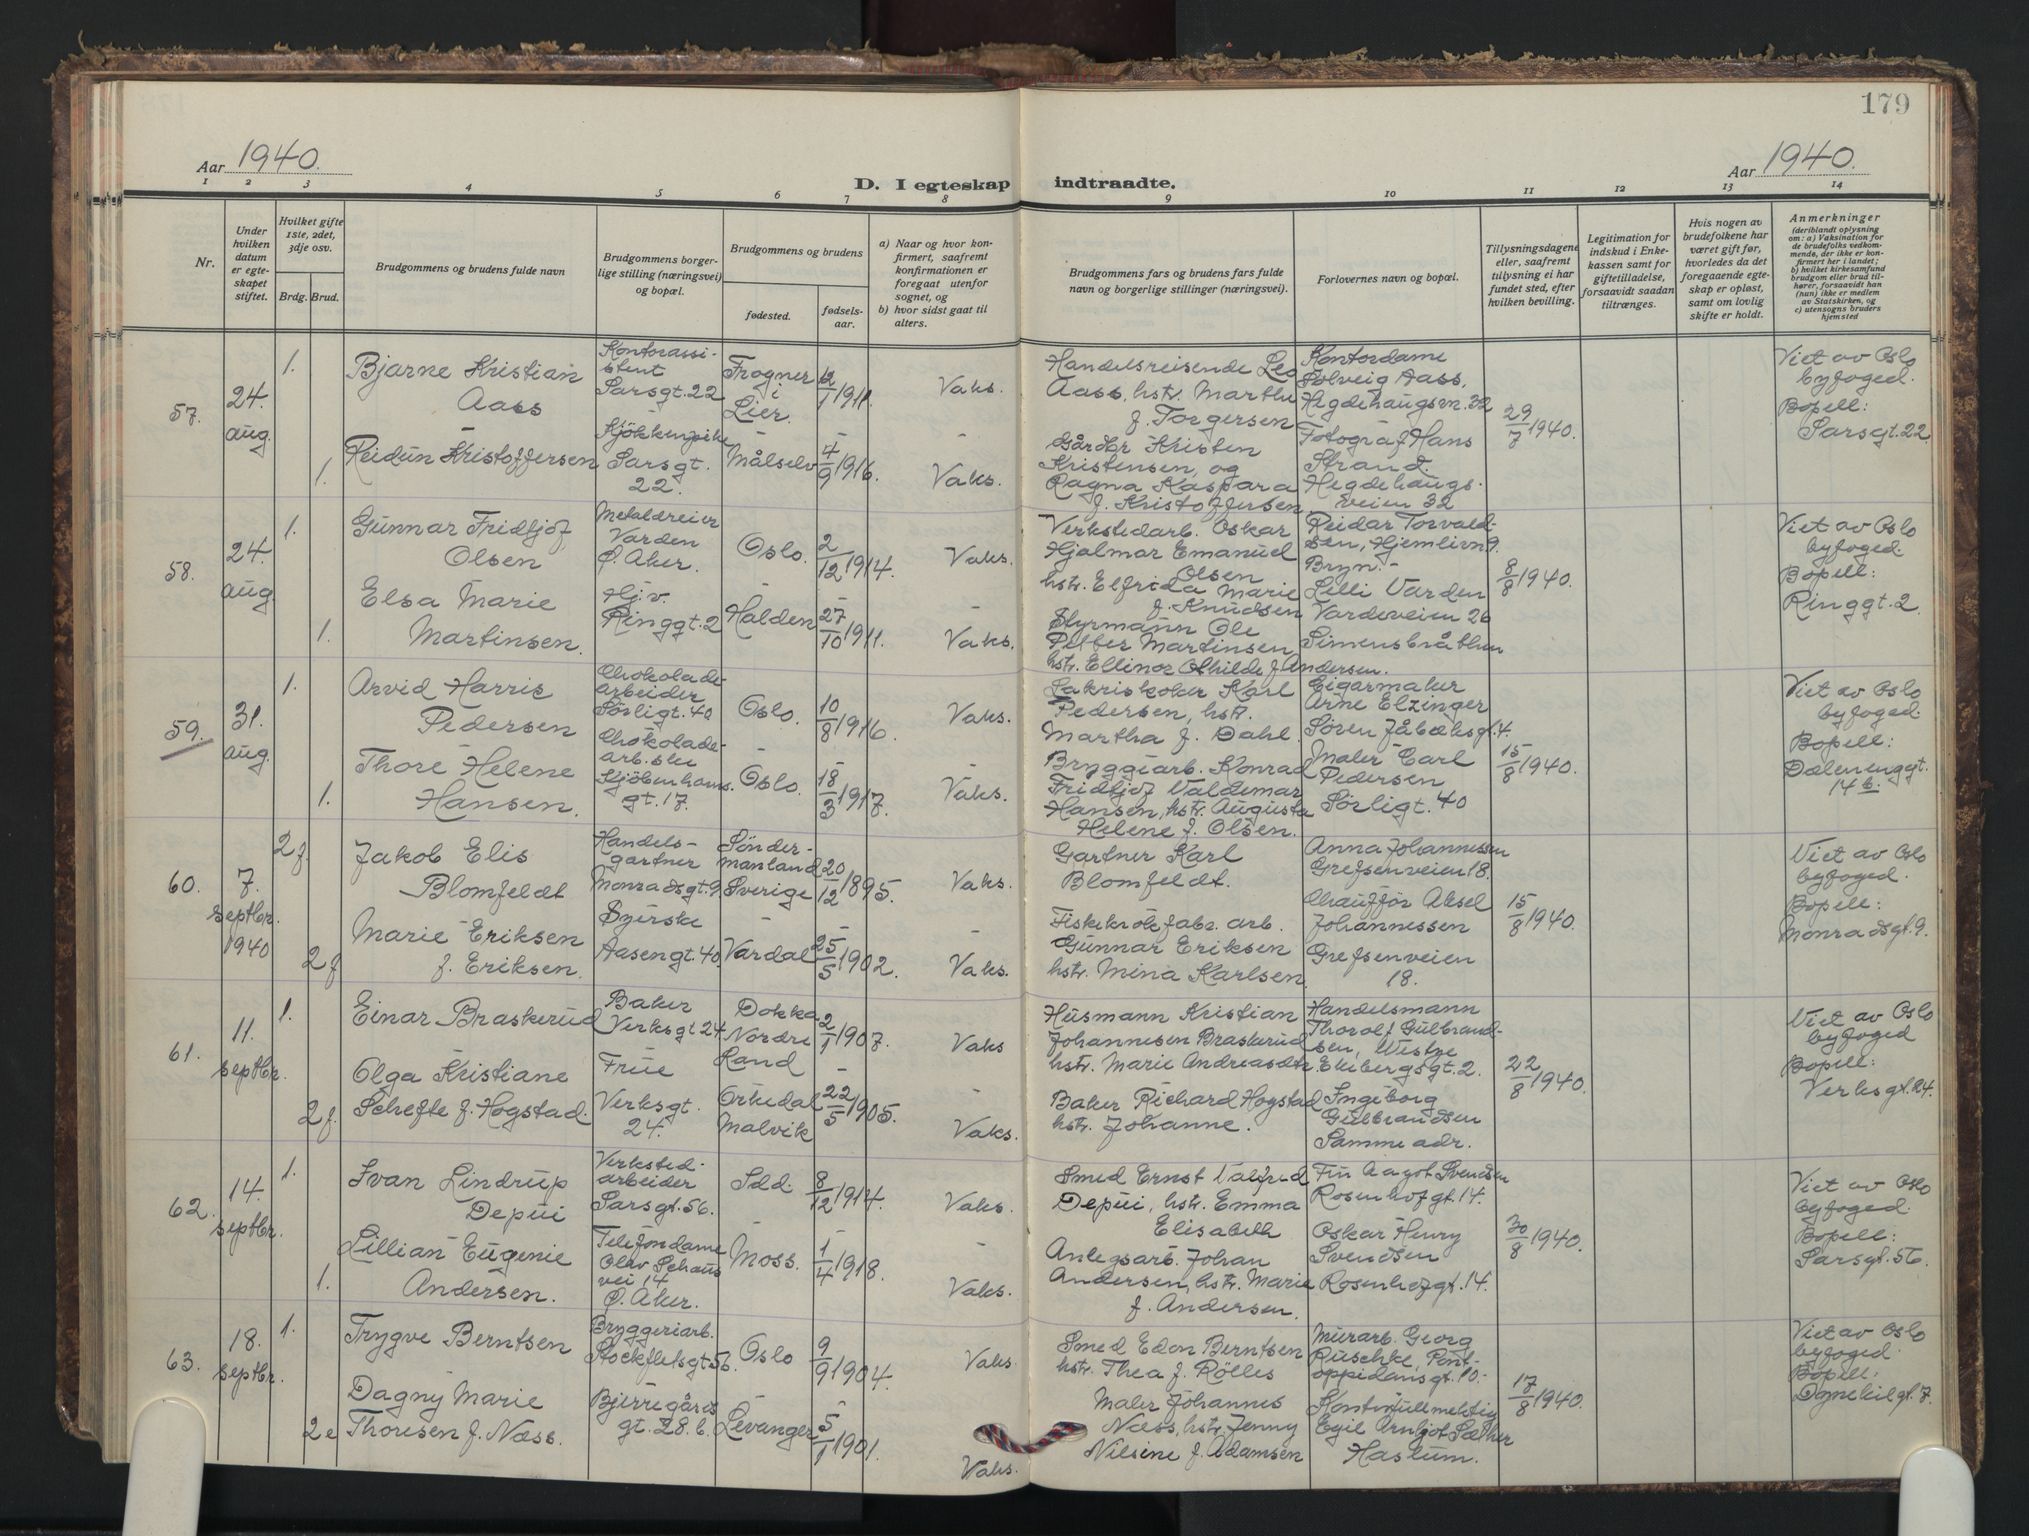 179
Aar 1940.
D. I egteskap indtraadte.
Aar 1940.
1 2 3 4 5 6 7 8 9 10 11 12 13 14
Nr.
Under
hvilken
datum
er egte-
skapet
stiftet.
Hvilket gifte
1ste, 2det,
3dje osv.
Brdg. Brud.
Brudgommens og brudens fulde navn
Brudgommens borger-
lige stilling (næringsvei)
og bopæl.
Brudgommens og brudens
fødested.
fødsels-
aar.
a) Naar og hvor kon-
firmert, saafremt
konfirmationen er
foregaat utenfor
sognet, og
b) hvor sidst gaat til
alters.
Brudgommens fars og brudens fars fulde
navn og borgerlige stillinger (næringsvei).
Forlovernes navn og bopæl.
Tillysningsdagene
eller, saafremt
tillysning ei har
fundet sted, efter
hvilken bevilling.
Legitimation for
indskud i Enke-
kassen samt for
giftetilladelse,
forsaavidt saadan
tiltrænges.
Hvis nogen av
brudefolkene har
været gift før,
hvorledes da det
foregaaende egte-
skap er opløst,
samt om lovlig
skifte er holdt.
Anmerkninger
(deriblandt oplysning
om: a) Vaksination for
de brudefolks vedkom-
mende, der ikke er kon-
firmert her i landet;
b) hvilket kirkesamfund
brudgom eller brud til-
hører, forsaavidt han
(hun) ikke er medlem
av Statskirken, og
c) utensogns bruders
hjemsted
57.
24.
aug.
1.
Bjarne Kristian
Aass
Kontorassi-
stent
Sarsgt. 22
Frogner
i
Lier.
12/1 1911.
Vaks.
Handelsreisende Leo
Aass, hstr. Marthe
f. Torgersen
Kontordame
Solveig Aass,
Hegdehaugsvn. 32
29/7 1940.
Viet av Oslo
byfoged.
Bopell:
Sarsgt. 22
1.
Reidun Kristoffersen
Kjökkenpike
Sarsgt.
22.
Målselv
4/9 1916.
Vaks.
Gårdbr Kristen
Kristensen, og
Ragna Kaspara
f. Kristoffersen
Fotograf Hans
Strand.
Hegdehaugs-
veien 32
58.
24.
aug.
1.
Gunnar Fridtjof
Olsen
Metaldreier
Varden
Ø. Aker.
Oslo.
2/12 1914.
Vaks.
Verkstedarb. Oskar
Hjalmar Emanuel
Olsen
hstr. Elfrida Marie
f. Knudsen
Reidar Torvald-
sen, Hjemlivn 9.
Bryn. -
8/8 1940.
Viet av Oslo
byfoged.
Bopell:
Ringgt. 2
1.
Elsa Marie
Martinsen.
Hj.v.
Ringgt. 2
Halden
27/10 1911.
Vaks.
Styrmann Ole
Petter Martinsen
hstr. Ellinor Othilde f. Andersen.
Lilli Varden
Vardeveien 26
Simensbråthen
59.
31.
aug.
1.
Arvid Harris
Pedersen
Chokolade-
arbeider
Sörligt. 40
Oslo.
10/8 1916.
Vaks.
Lakriskoker Karl
Pedersen, hstr.
Martha f. Dahl.
Cigarmaker
Arne Elzinger
Søren Jåbæksgt. 4.
15/8 1940.
Viet av Oslo
byfoged.
Bopell:
Dælenenggt.
14 b.
1.
Thore Helene
Hansen.
Chokolade-
arb.ske
Kjöbenhavns.
gt. 17.
Oslo.
18/3 1917.
Vaks.
Bryggiarb. Konrad
Fridtjof Valdemar
Hansen, hstr. Augusta
Helene f. Olsen.
Maler Carl
Pedersen
Sörligt. 40
60.
7.
septbr.
1940
2 f.
Jakob Elis
Blomfeldt
Handels-
gartner
Monradsgt. 9.
Sönder-
manland
Sverige
20/12 1895.
Vaks.
Gartner Karl
Blomfeldt.
Anna Johannessen
Grefsenveien 18.
15/8 1940.
Viet av Oslo
byfoged.
Bopell:
Monradsgt. 9.
2 f
Marie Eriksen
f. Eriksen.
Syerske
Aasengt. 40.
Vardal
25/5 1902.
Vaks.
Fiskekrokfabr. arb.
Gunnar Eriksen
hstr. Mina Karlsen.
Chauffør Aksel
Johannessen
Grefsenveien
18.
61.
11.
septbr.
1.
Einar Braskerud
Baker
Verksgt 24
Dokka
Nordre
Land
2/1 1907.
Vaks
Husmann Kristian
Johannesen Braskerud
hstr. Marie Andreasdtr.
Handelsmann
Thorolf Gulbrand-
sen, Westye
Ekebergsgt. 2.
22/8 1940.
Viet av Oslo
byfoged
Bopell:
Verksgt. 24.
2 f.
Olga Kristiane
Schefte f. Hogstad.
Frue
Verksgt.
24.
Orkedal
Malvik
22/5 1905.
Vaks.
Baker Richard Hogstad
hstr. Johanne.
Ingeborg
Gulbrandsen
Samme adr.
62.
14.
septbr.
1.
Ivan Lindrup
Depui
Verksted-
arbeider
Sarsgt. 56.
Sdd.
8/12 1914.
Vaks.
Smed Ernst Valfrid
Depui, hstr. Emma
Elisabeth
Fru Aagot Svendsen
Rosenhofgt. 14.
30/8 1940.
Viet av Oslo
byfoged.
Bopell:
Sarsgt. 56.
1.
Lillian Eugenie
Andersen.
Telefondame
Olav Schaus
vei 14
Ø. Aker.
Moss.
1/4 1918.
Vaks.
Anlegsarb. Johan
Andersen, hstr. Marie
f. Andersen.
Oskar Henry
Svendsen
Rosenhofgt. 14.
63.
18.
septbr.
1.
Trygve Berntsen
Bryggeriarb.
Stockfletsgt 56.
Oslo
9/9 1904.
Vaks.
Smed Edon Berntsen
hstr. Thea f. Rölles
Murarb. Georg
Ruschke, Pont-
oppidansgt. 10.-
17/8 1940.
Viet av Oslo
byfoged.
Bopell:
Dynekilgt. 7.
2 e
Dagny Marie
Thoresen f. Næss.
Bjerregårds
gt. 28. b.
Levanger
5/1 1901.
Vaks.
Maler Johannes
Næss, hstr. Jenny
Nilsine f. Adamsen
Kontorfullmektig
Egil Arnljot Sæther
Haslum.